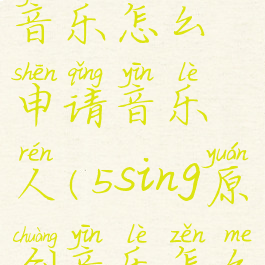 音乐怎么
shēn qǐng yīn lè
申请音乐
rén yuán
人(5sing原
chuàng yīn lè zěn me
创音乐怎么